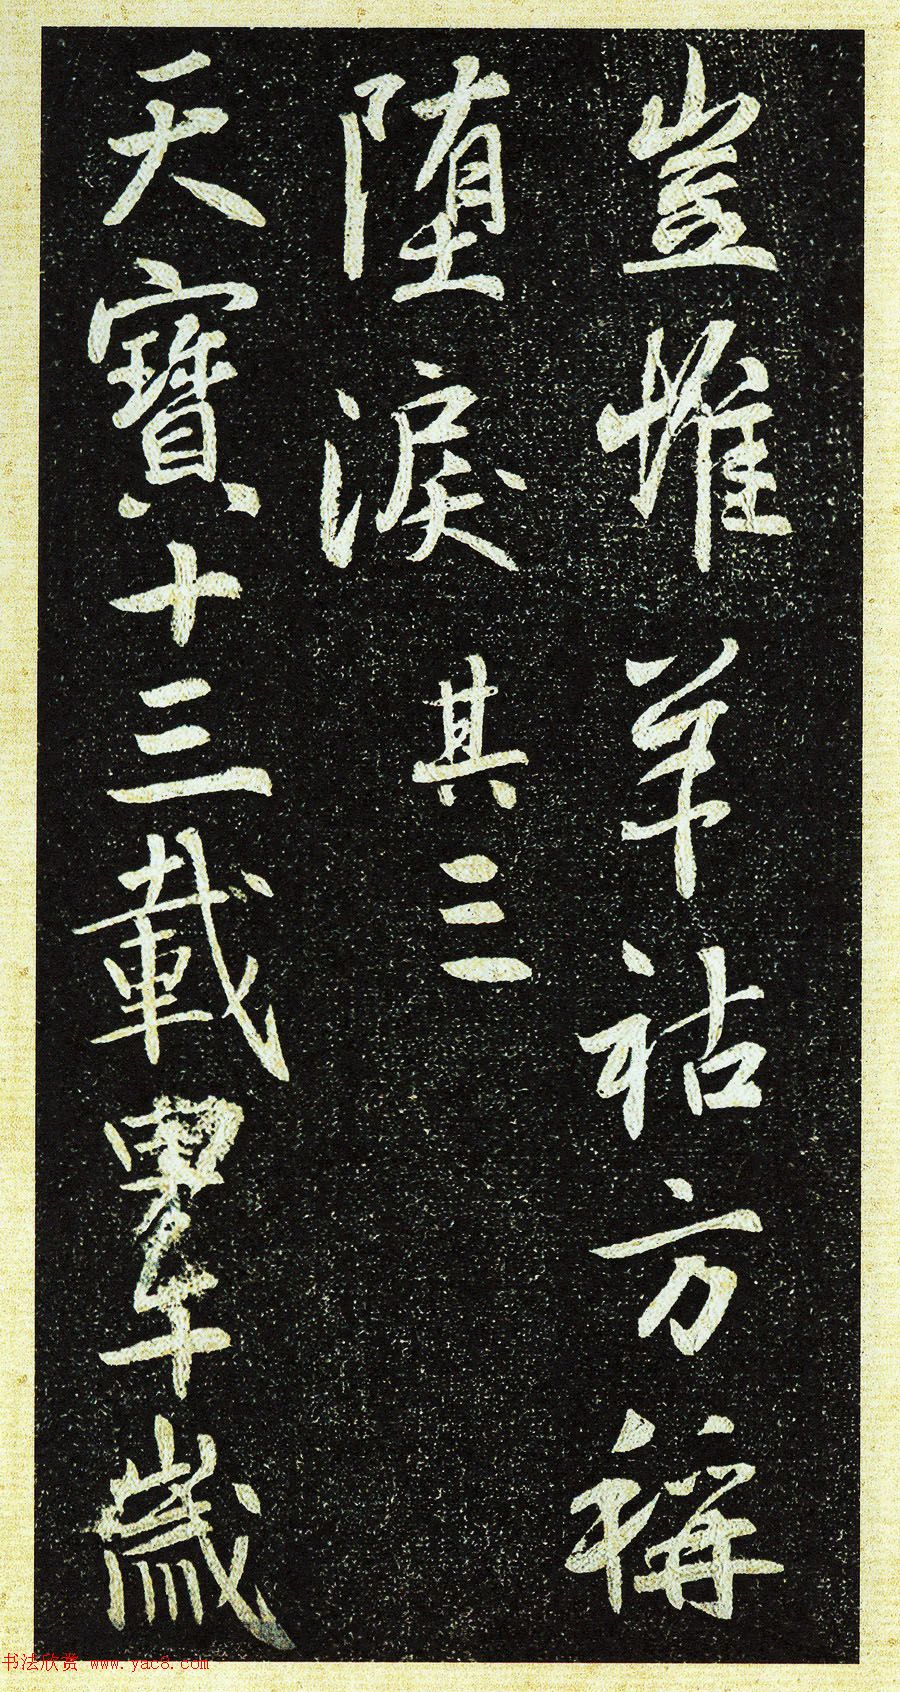 豈惟羊祜方稱
堕淚 其三
天寶十三載甲午歲
书法欣赏 www.yac8.com